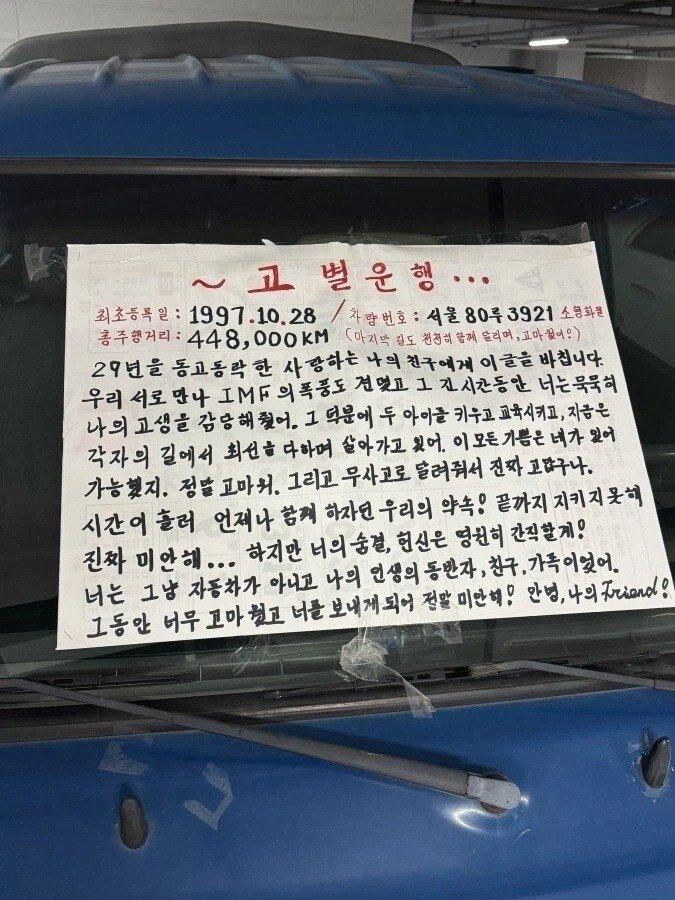 ~ 고 별 운 행 ...
최초등록일 : 1997.10.28 / 차량번호 : 서울80루 3921 소형화물
총주행거리 : 448,000KM (마지막 길도 천천히 함께 달리며, 고마웠어!)
29년을 동고동락 한 사랑하는 나의 친구에게 이 글을 바칩니다.
우리 서로 만나 IMF의 폭풍도 견뎠고 그 긴 시간동안 너는 묵묵히
나의 고생을 감당해 줬어. 그 덕분에 두 아이를 키우고 교육시키고, 지금은
각자의 길에서 최선을 다하며 살아가고 있어. 이 모든 기쁨은 네가 있어
가능했지. 정말 고마워. 그리고 무사고로 달려줘서 진짜 고맙구나.
시간이 흘러 언제나 함께 하자던 우리의 약속! 끝까지 지키지 못해
진짜 미안해... 하지만 너의 숨결, 헌신은 영원히 간직할게!
너는 그냥 자동차가 아니고 나의 인생의 동반자, 친구, 가족이었어.
그동안 너무 고마웠고 너를 보내게 되어 정말 미안해! 안녕, 나의 Friend!